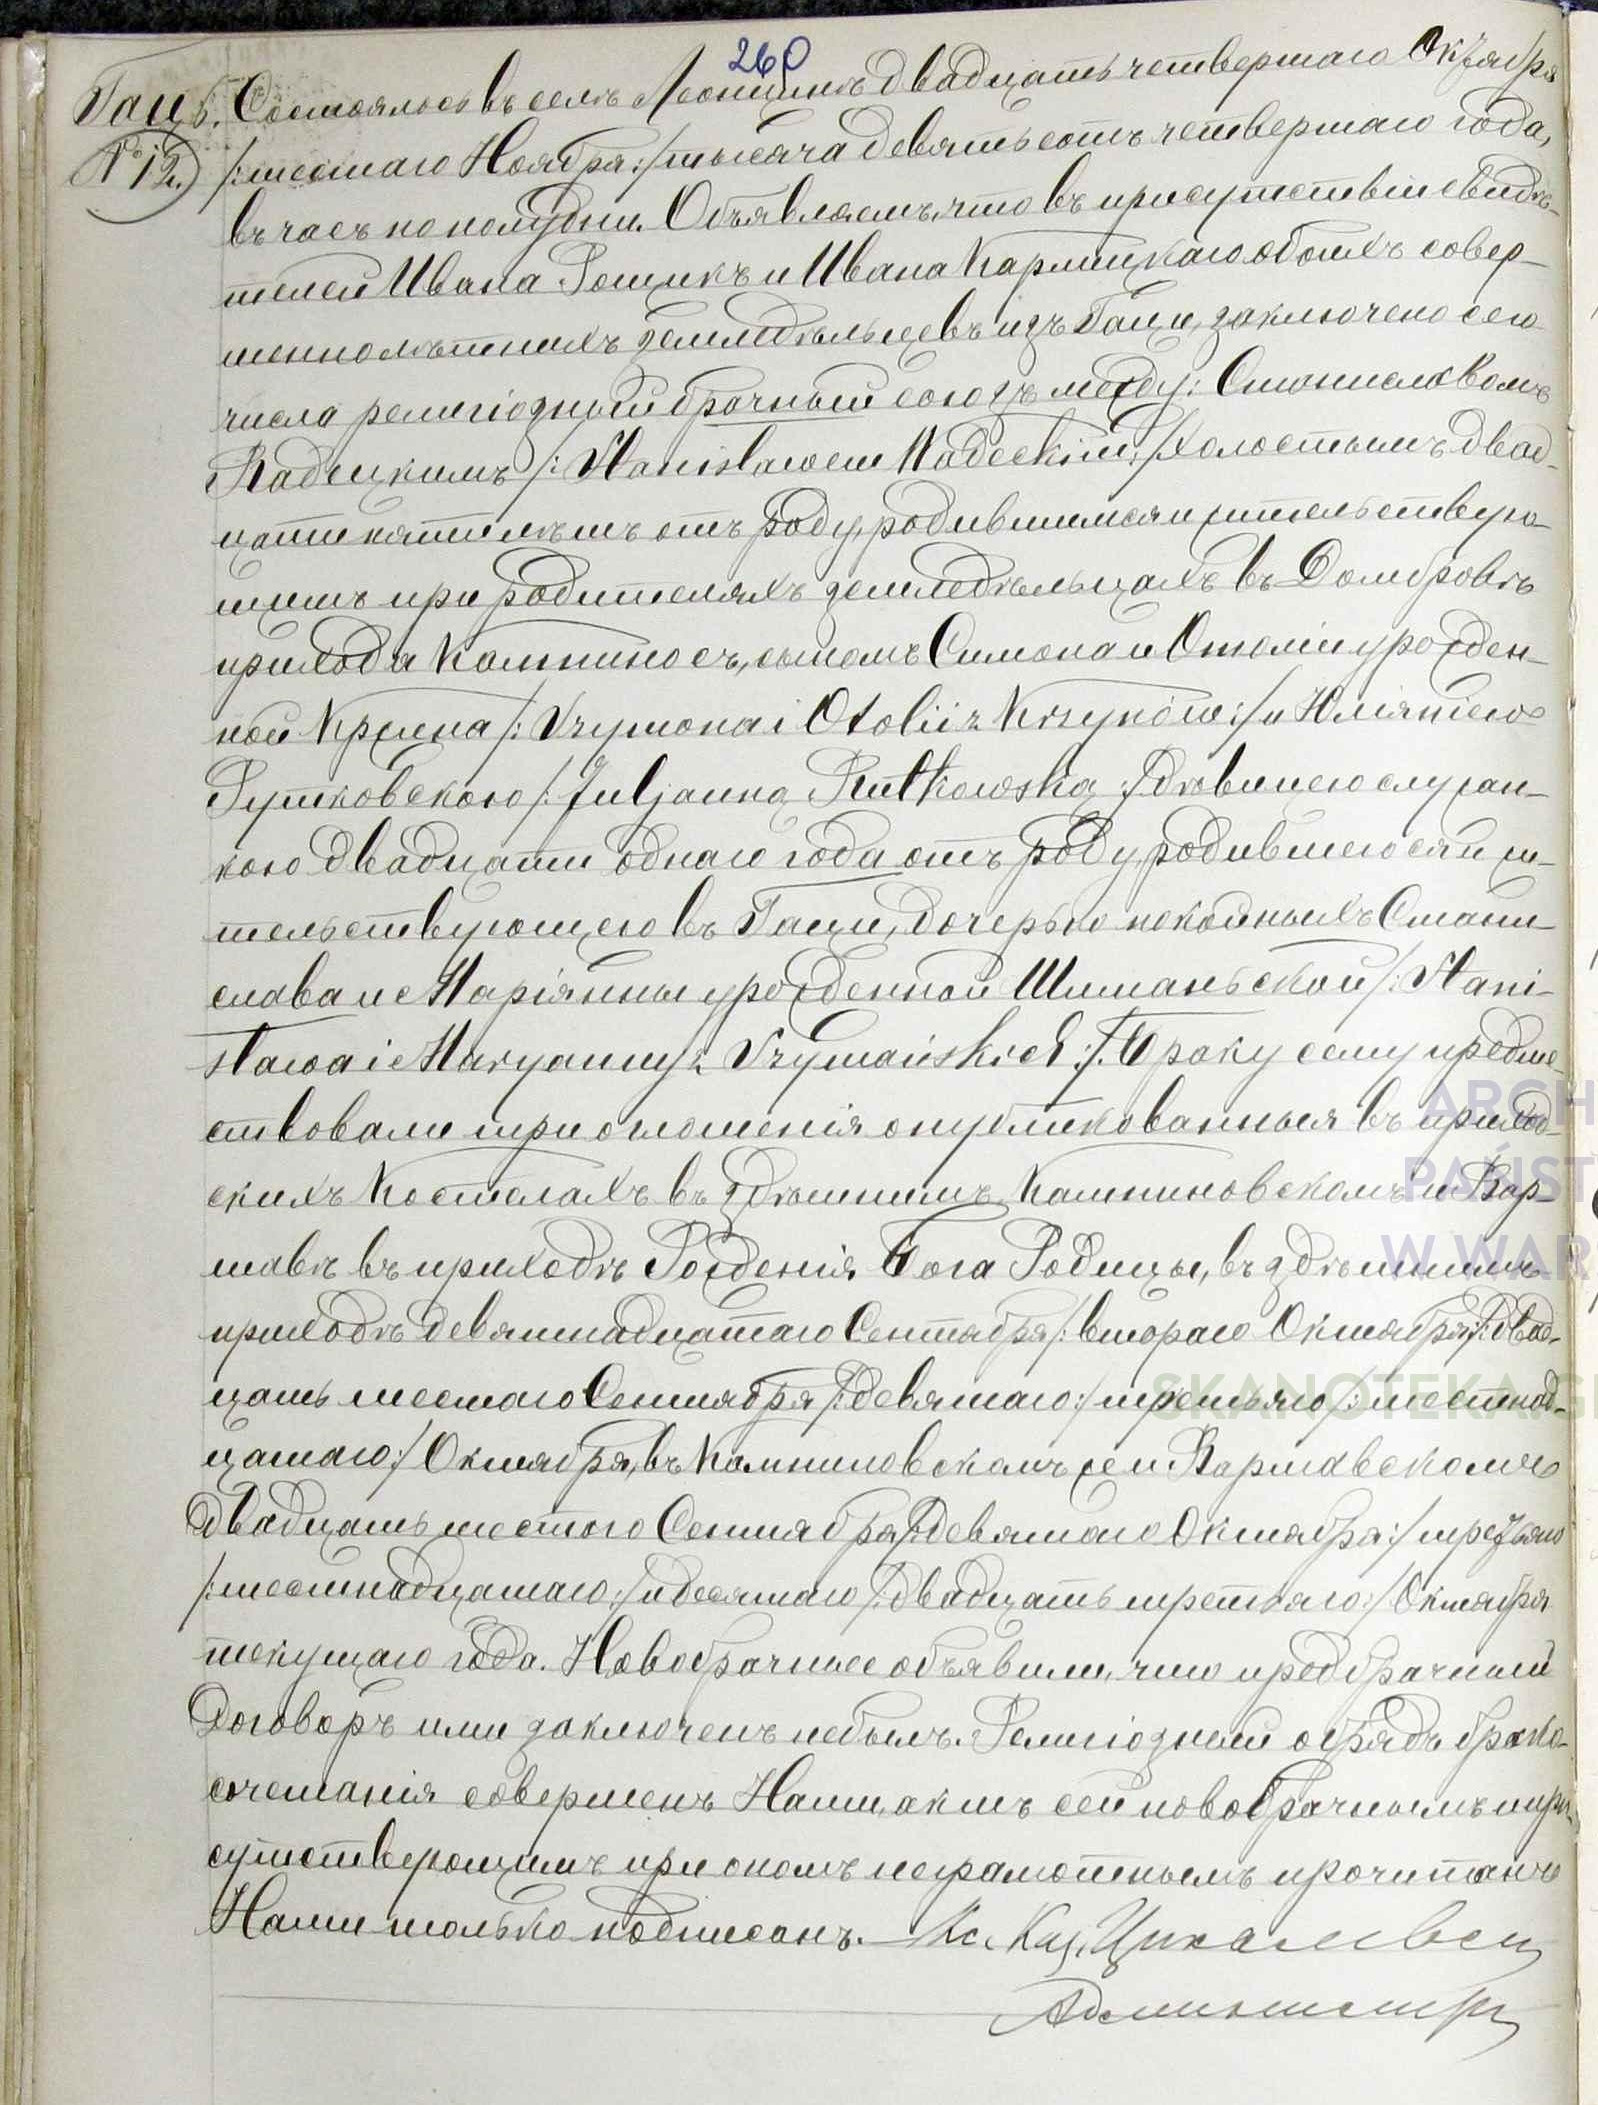 260
Гацъ.
№ 12.
Состоялось въ селѣ Леонцинѣ двадцать четвертаго Октября
/:шестаго Ноября:/ тысяча девятьсотъ четвертаго года,
въ часъ по полудни. Объявляемъ, что въ присутствіи свидѣ-
телей Ивана Рощикъ и Ивана Кармицкаго обоихъ совер-
шеннолѣтнихъ земледѣльцевъ изъ Гаци, заключено сего
числа религіозный брачный союзъ между: Станиславомъ
Вадецкимъ /:Stanisławem Wadeckim:/ холостымъ двад-
цатипятилѣтъ отъ роду, родившимся и жительствую-
щимъ при родителяхъ земледѣльцахъ въ Домбровѣ
прихода Кампиносъ, сыномъ Симона и Отоліи урожден-
ной Кржина /:Szymona i Otolii z Krzynów:/ и Юліянною
Рутковскою /:Juljanną Rutkowską:/ дѣвицею служан-
кою двадцати однаго года отъ роду родившеюся и жи-
тельствующею въ Гаци, дочерью покойныхъ Стани-
слава и Маріянны урожденной Шиманьской /:Stani-
sława i Maryanny z Szymańskich:/. Браку сему предше-
ствовали три оглошенія опубликованныя въ приход-
скихъ Костелахъ въ здѣшнимъ, Кампиновскомъ и Вар-
шавѣ въ приходѣ Рожденія Бога Родицы, въ здѣшнимъ
приходѣ девятнадцатаго Сентября /:втораго Октября:/ двад-
цать шестаго Сентября /:девятаго:/ третьяго /:шестнад-
цатаго:/ Октября, въ Кампиновскомъ же и Варшавскомъ
двадцать шестого Сентября /:девятаго Октября:/ третьяго
/:шестнадцатаго:/ и десятаго /:двадцать третьяго:/ Октября
текущаго года. Новобрачные объявили, что предбрачный
договоръ ими заключенъ небылъ. Религіозный обрядъ брако-
сочетанія совершенъ Нами, актъ сей новобрачнымъ и при-
сутствующимъ при ономъ неграмотнымъ прочитанъ
Нами только подписанъ. Кс. Каз.
Администр
ARCH
PAŃST
W WAR
SKANOTEKA.G